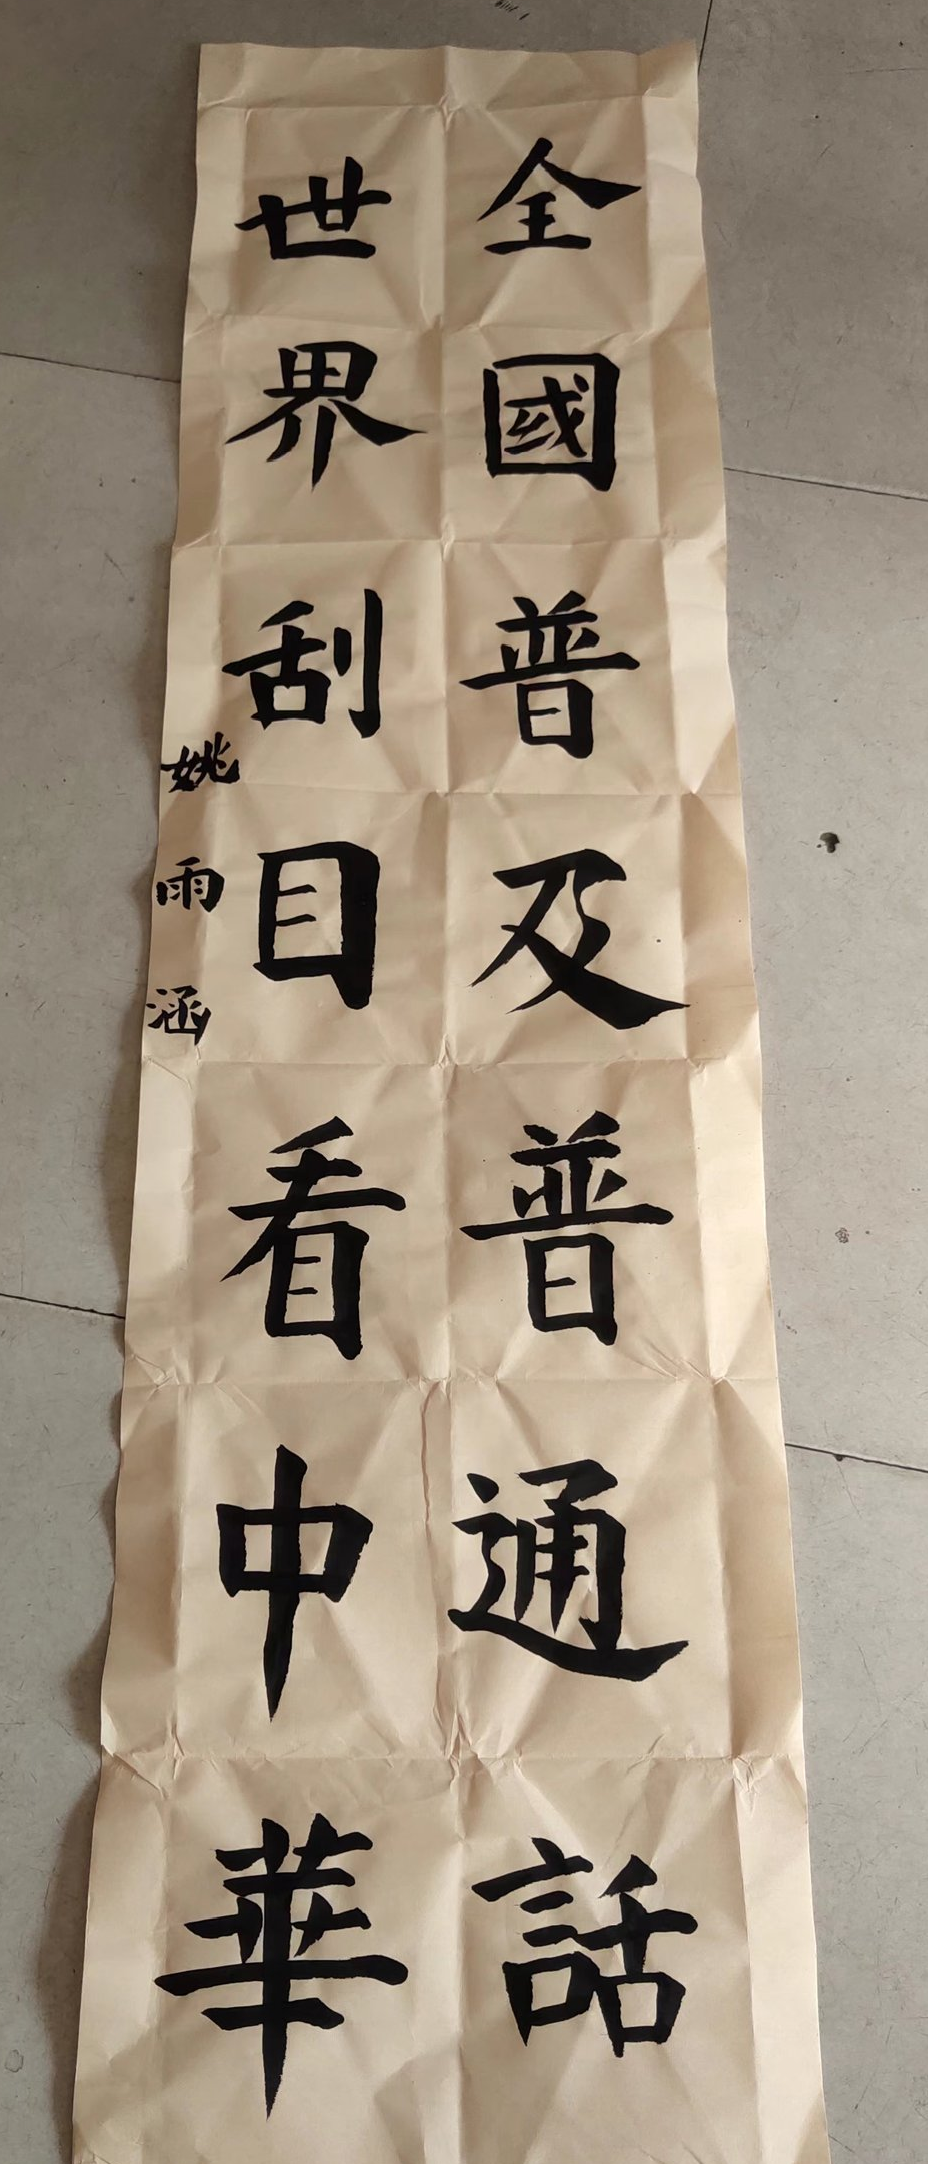 全國普及普通話
世界刮目看中華
姚雨涵